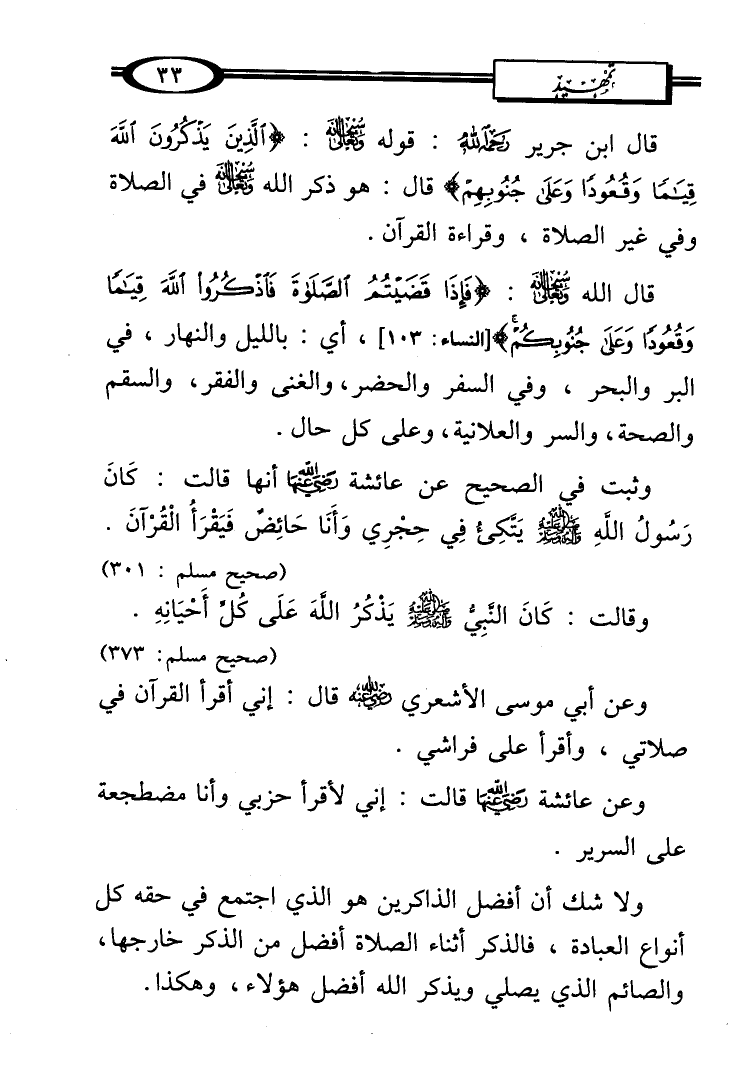 تمهيد
٣٣
قال ابن جرير رحمه الله : قوله سبحانه وتعالى : ﴿ٱلَّذِينَ يَذْكُرُونَ ٱللَّهَ
قِيَـٰمًا وَقُعُودًا وَعَلَىٰ جُنُوبِهِمْ﴾ قال : هو ذكر الله سبحانه وتعالى في الصلاة
وفي غير الصلاة ، وقراءة القرآن .
قال الله سبحانه وتعالى : ﴿فَإِذَا قَضَيْتُمُ ٱلصَّلَوٰةَ فَٱذْكُرُوا۟ ٱللَّهَ قِيَـٰمًا
وَقُعُودًا وَعَلَىٰ جُنُوبِكُمْ ۚ﴾ [النساء: ١٠٣] ، أي : بالليل والنهار ، في
البر والبحر ، وفي السفر والحضر، والغنى والفقر، والسقم
والصحة، والسر والعلانية، وعلى كل حال .
وثبت في الصحيح عن عائشة رضي الله عنها أنها قالت : كَانَ
رَسُولُ اللَّهِ صلى الله عليه وآله وسلم يَتَّكِئُ فِي حِجْرِي وَأَنَا حَائِضٌ فَيَقْرَأُ الْقُرْآنَ .
(صحيح مسلم : ٣٠١)
وقالت : كَانَ النَّبِيُّ صلى الله عليه وآله وسلم يَذْكُرُ اللَّهَ عَلَى كُلِّ أَحْيَانِهِ .
(صحيح مسلم: ٣٧٣)
وعن أبي موسى الأشعري رضي الله عنه قال : إني أقرأ القرآن في
صلاتي ، وأقرأ على فراشي .
وعن عائشة رضي الله عنها قالت : إني لأقرأ حزبي وأنا مضطجعة
على السرير .
ولا شك أن أفضل الذاكرين هو الذي اجتمع في حقه كل
أنواع العبادة ، فالذكر أثناء الصلاة أفضل من الذكر خارجها،
والصائم الذي يصلي ويذكر الله أفضل هؤلاء ، وهكذا .